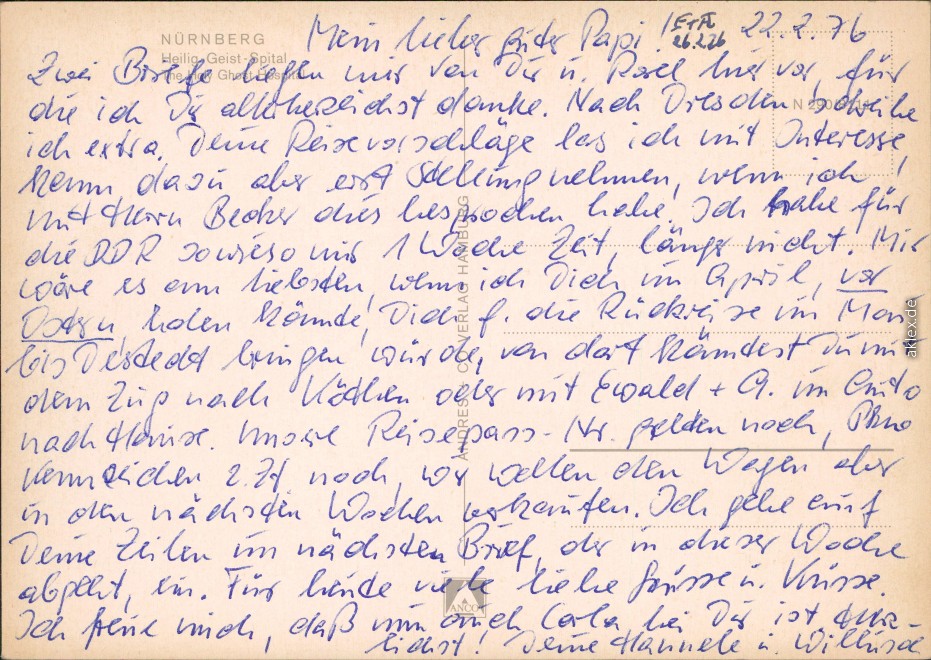 NÜRNBERG
Heilig-Geist-Spital
The Holy Ghost Hospital
Mein lieber guter Papi! 22.2.76
26.2.76
Zwei Briefe liegen mir von Dir u. Rosel hier vor, für
die ich Dir allerherzlichst danke. Nach Dresden schreibe
ich extra. Deine Reisevorschläge las ich mit Interesse,
kann dazu aber erst Stellung nehmen, wenn ich
mit Herrn Becker dies besprochen habe. Ich habe für
die DDR sowieso nur 1 Woche Zeit, länger nicht. Mir
wäre es am liebsten, wenn ich Dich im April, vor
Ostern, holen könnte, Dich f. die Rückreise im Mai
bis Destedt bringen würde, von dort könntest Du mit
dem Zug nach Köthen oder mit Ewald + A. im Auto
nach Hause. Unsere Reisepass-Nr. gelten noch, PKW
Kennzeichen z. Zt. noch, wir wollen den Wagen aber
in den nächsten Wochen verkaufen. Ich gehe auf
Deine Zeilen im nächsten Brief, der in dieser Woche
abgeht, ein. Für heute viele liebe Grüsse u. Küsse.
Ich freue mich, daß nun auch Carla bei Dir ist. Herz-
lichst! Deine Hannele u. Willusch
ANDRES + CO VERLAG HAMBURG
ANCO
aklex.de